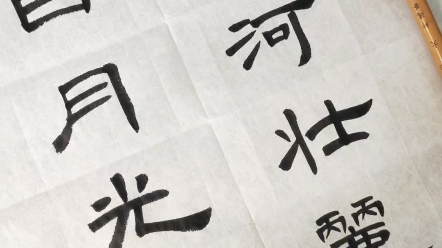 河壮麗
日月光